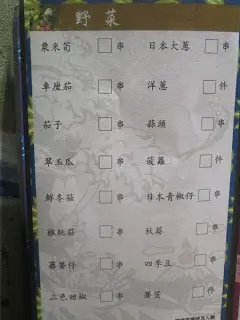 野菜
粟米筍 串 日本大蔥 串
車厘茄 串 洋蔥 件
茄子 串 蒜頭 串
翠玉瓜 串 菠蘿 件
鮮冬菇 串 日本青椒仔 串
雞髀菇 串 秋葵 串
蕃薯仔 件 四季豆 串
三色甜椒 串 薯蓉 件